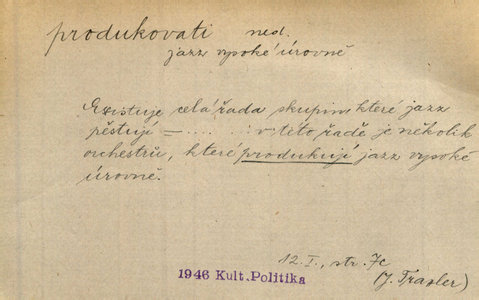 produkovati ned.
jazz vysoké úrovně
Existuje celá řada skupin které jazz
pěstují = ..... v této řadě je několik
orchestrů, které produkují jazz vysoké
úrovně.
12. I., str. 7c
1946 Kult. Politika
(J. Traxler)